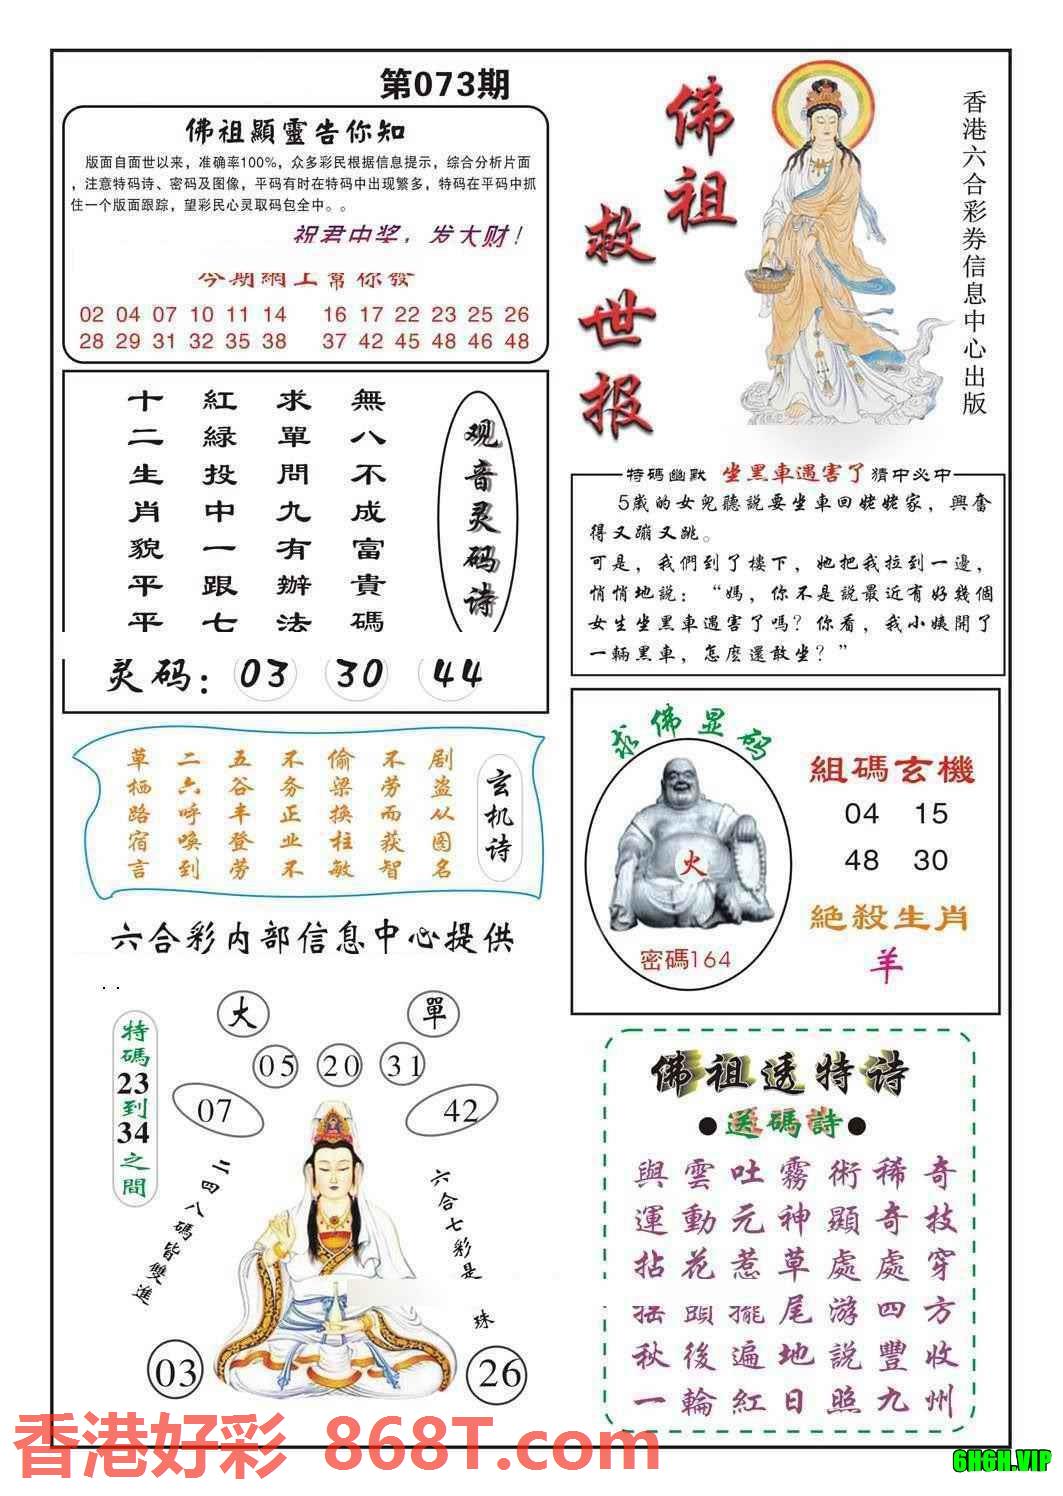 第073期
佛祖顯靈告你知
版面自面世以来，准确率100%，众多彩民根据信息提示，综合分析片面
，注意特码诗、密码及图像，平码有时在特码中出现繁多，特码在平码中抓
住一个版面跟踪，望彩民心灵取码包全中。。
祝君中奖，发大财！
今期網上幫你發
02 04 07 10 11 14 16 17 22 23 25 26
28 29 31 32 35 38 37 42 45 48 46 48
佛祖
救世报
香港六合彩券信息中心出版
观音灵码诗
無八不成富貴碼
求單問九有辦法
紅綠投中一跟七
十二生肖貌平平
灵码：03 30 44
特码幽默 坐黑車遇害了 猜中必中
5歲的女兒聽說要坐車回姥姥家，興奮
得又蹦又跳。
可是，我們到了樓下，她把我拉到一邊，
悄悄地說：“媽，你不是說最近有好幾個
女生坐黑車遇害了嗎？你看，我小姨開了
一輛黑車，怎麽還敢坐？”
玄机诗
剧盗从图名
不劳而获智
偷梁换柱敏
不务正业不
五谷丰登劳
二六呼唤到
草栖路宿言
求佛显码
火
密碼164
組碼玄機
04 15
48 30
絕殺生肖
羊
六合彩内部信息中心提供
大 單
05 20 31
07 42
特碼23到34之間
二四八碼皆雙進
六合七彩是
珠
03 26
佛祖透特诗
●送碼詩●
與雲吐霧術稀奇
運動元神顯奇技
拈花惹草處處穿
摇頭擺尾游四方
秋後遍地説豐收
一輪紅日照九州
香港好彩 868T.com
6H6H.VIP